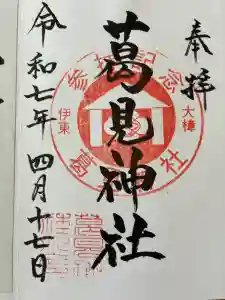 奉拝
葛見神社
令和七年四月十七日
参拝記念
伊東
大樟